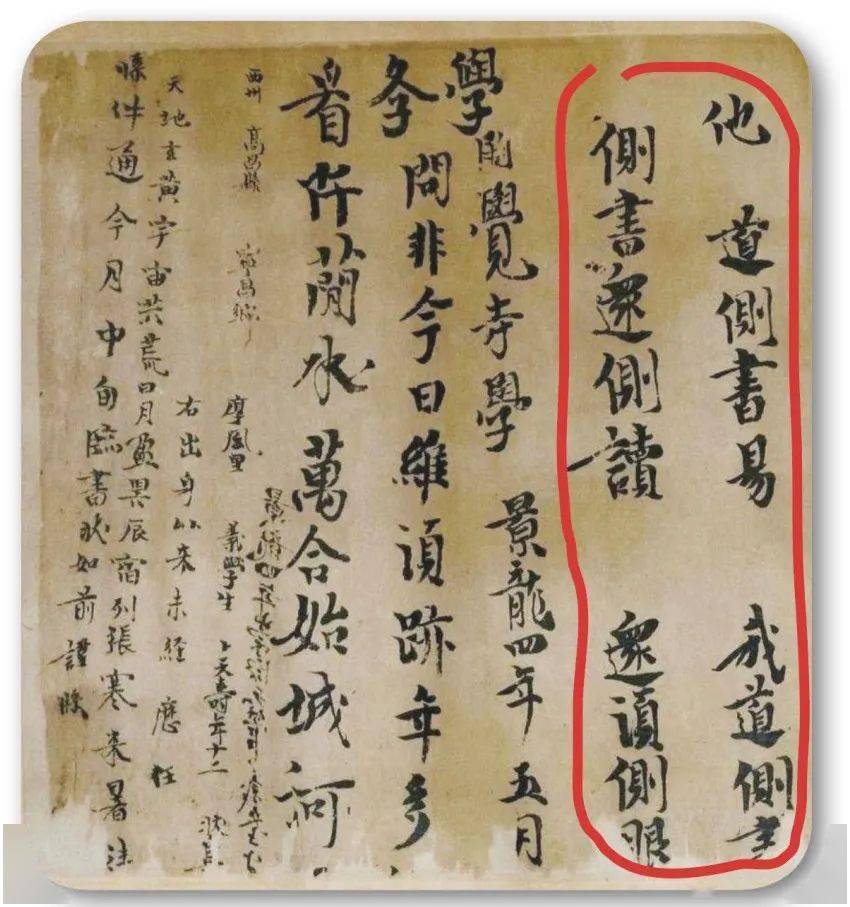 他道側書易 我道側書
側書還側讀 還須側眼
學開覺寺學 景龍四年五月
斈問非今日維須跡年多
看阡簡水萬合始城河
景龍四年
西州 高昌縣 寧昌鄉 厚風里 義學生 卜天壽年十二 狀具
右出身以來未經 歷任
天地玄黃宇宙洪荒日月盈昃辰宿列張寒來暑往
牒件通今月中旬臨書狀如前謹牒